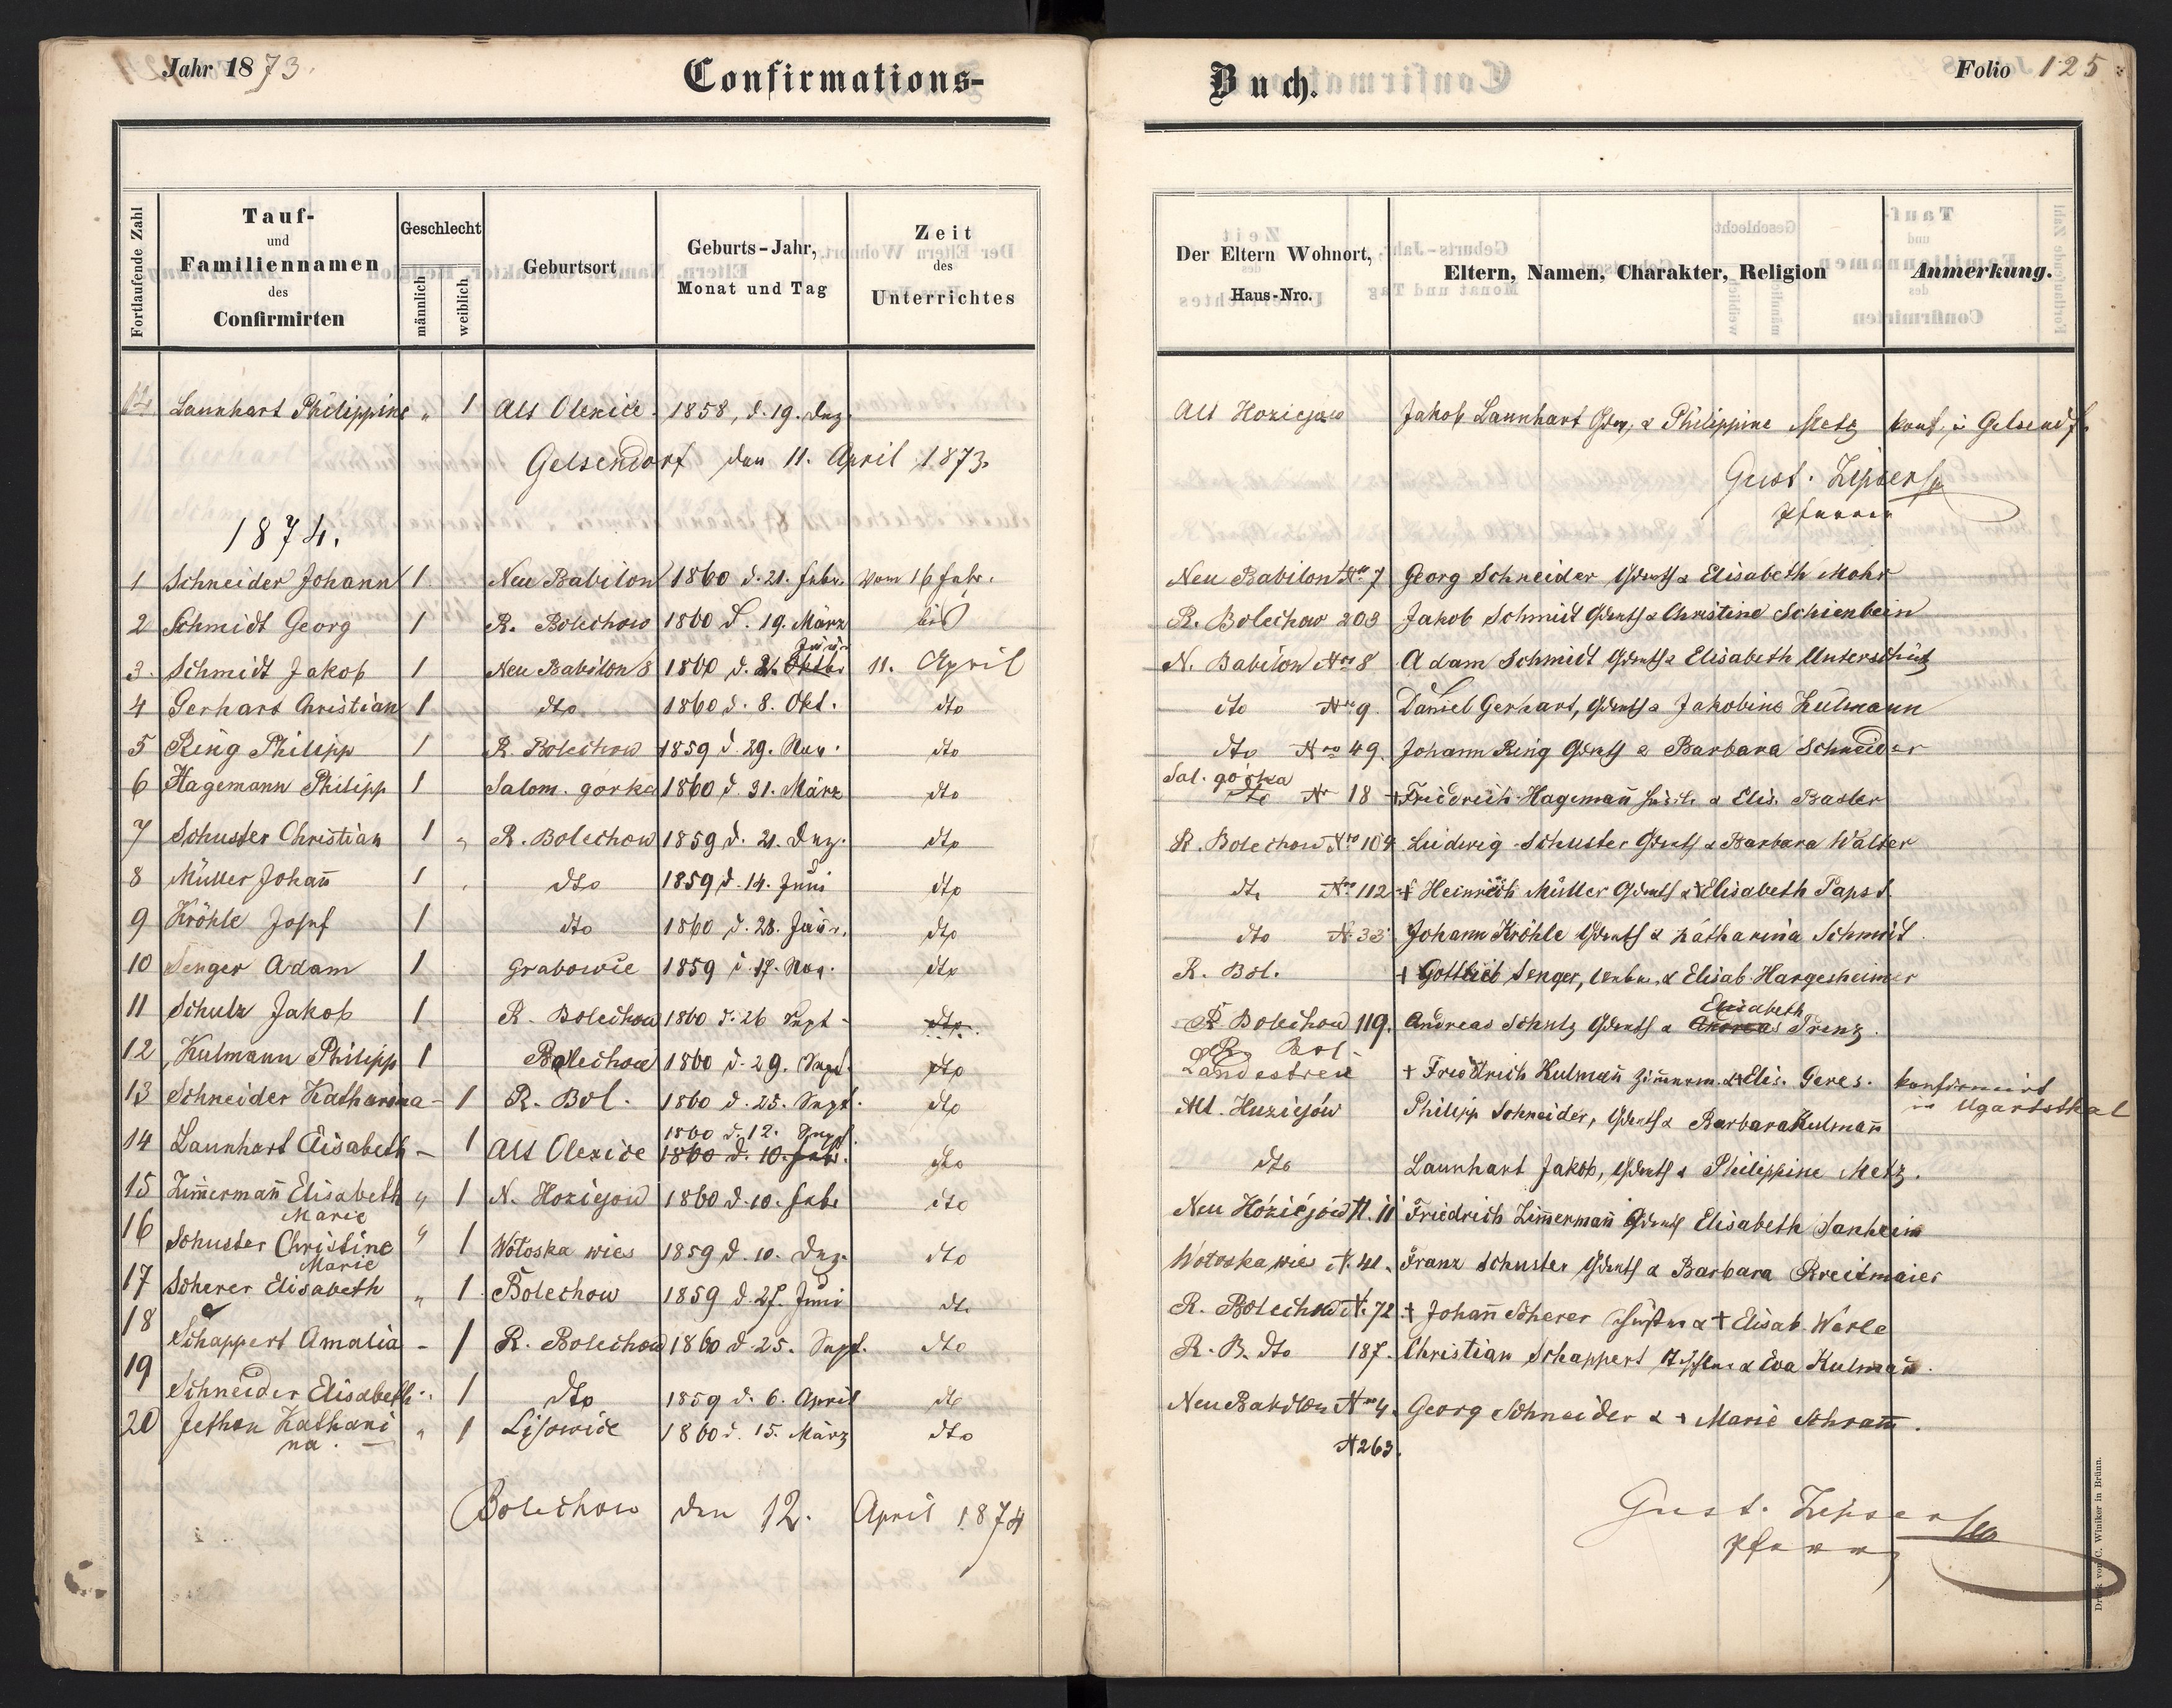 Jahr 1873.
Confirmations-
Buch.
Folio 125
Fortlaufende Zahl
Tauf-
und
Familiennamen
des
Confirmirten
Geschlecht
männlich
weiblich
Geburtsort
Geburts-Jahr,
Monat und Tag
Zeit
des
Unterrichtes
Der Eltern Wohnort,
Haus-Nro.
Eltern, Namen, Charakter, Religion
Anmerkung.
Launhart Philippine " 1 Alt Olexice 1858, d. 19. Dez. Alt Hoziejow Jakob Launhart & Philippine Metz konf. in Gelsendf.
Gelsendorf den 11. April 1873.
Gust. Zipser
Pfarrer
1874.
1 Schneider Johann 1 Neu Babilon 1860 d. 21. Febr. Vom 16 Febr. Neu Babilon Nro 7 Georg Schneider & Elisabeth Mohr
2 Schmidt Georg 1 R. Bolechow 1860 d. 19. März bis R. Bolechow 203 Jakob Schmidt & Christine Schienbein
3. Schmidt Jakob 1 Neu Babilon 8 1860 d. 11. April N. Babilon Nro 8 Adam Schmidt & Elisabeth Unterschütz
4 Gerhart Christian 1 dto 1860 d. 8. Okt. dto dto Nro 9 Daniel Gerhart, & Jakobine Kulmann
5 Ring Philipp 1 R. Bolechow 1859 d. 29. Nov. dto dto Nro 49. Johann Ring & Barbara Schneider
Sal. górka
6 Hagemann Philipp 1 Salom. gorka 1860 d. 31. März dto dto Nr 18 + Friedrich Hagemañ & Elis. Basler
7 Schuster Christian 1 " R. Bolechow 1859 d. 21. Dez. dto R. Bolechow Nro 104 Ludwig Schuster & Barbara Walter
8 Müller Johañ 1 dto 1859 d. 14. Juni dto dto Nro 112 + Heinrich Müller & + Elisabeth Papst.
9 Kröhle Josef 1 dto 1860 d. 28. Jänr. dto dto N. 33 Johann Kröhle & Katharina Schmidt.
10 Senger Adam 1 Grabowie 1859 d. 17. Nov. dto R. Bol. + Gottlieb Senger, & Elisab. Hargesheimer
Elisabeth
11 Schulz Jakob 1 R. Bolechow 1860 d. 26 Sept. dto. R Bolechow 119. Andreas Schulz & Andreas Trenz.
R. Bol.
12 Kulmann Philipp 1 Bolechow 1860 d. 29. Sept. dto Landestreu + Friedrich Kulmañ Zim̃erm. & + Elis. Geres. konfirmirt
in Ugartsthal
13 Schneider Katharina - 1 R. Bol. 1860 d. 25. Sept. dto Alt. Huziejów Philipp Schneider, & Barbara Kulmañ
1860 d. 12. Sept.
14 Launhart Elisabeth - 1 Alt Olexice 1860 d. 10. Febr. dto dto Launhart Jakob, & Philippine Metz.
15 Zim̃ermañ Elisabeth " 1 N. Hoziejow 1860 d. 10. Febr dto Neu Hóziejów N. 11 Friedrich Zim̃ermañ Elisabeth Sanheim
Marie
16 Schuster Christine " 1 Wołoska wies 1859 d. 10. Dez. dto Wołoska wies N. 41. Franz Schuster & Barbara Kreitmaier
Marie
17 Scherer Elisabeth " 1 Bolechow 1859 d. 27. Juni dto R. Bolechow N. 72 + Johañ Scherer & + Elisab. Werle
18 Schappert Amalia - 1 R. Bolechow 1860 d. 25. Sept. dto R. B. dto 187. Christian Schappert & Eva Kulmañ.
19 Schneider Elisabeth " 1 dto 1859 d. 6. April dto Neu Babilon Nro 4. Georg Schneider & + Marie Schram̃.
20 Jethon Kathari " 1 Lisowice 1860 d. 15. März dto N 263.
na. -
Bolechow den 12. April 1874
Gust. Zipser
Pfarrer
Druck von C. Winiker in Brünn.